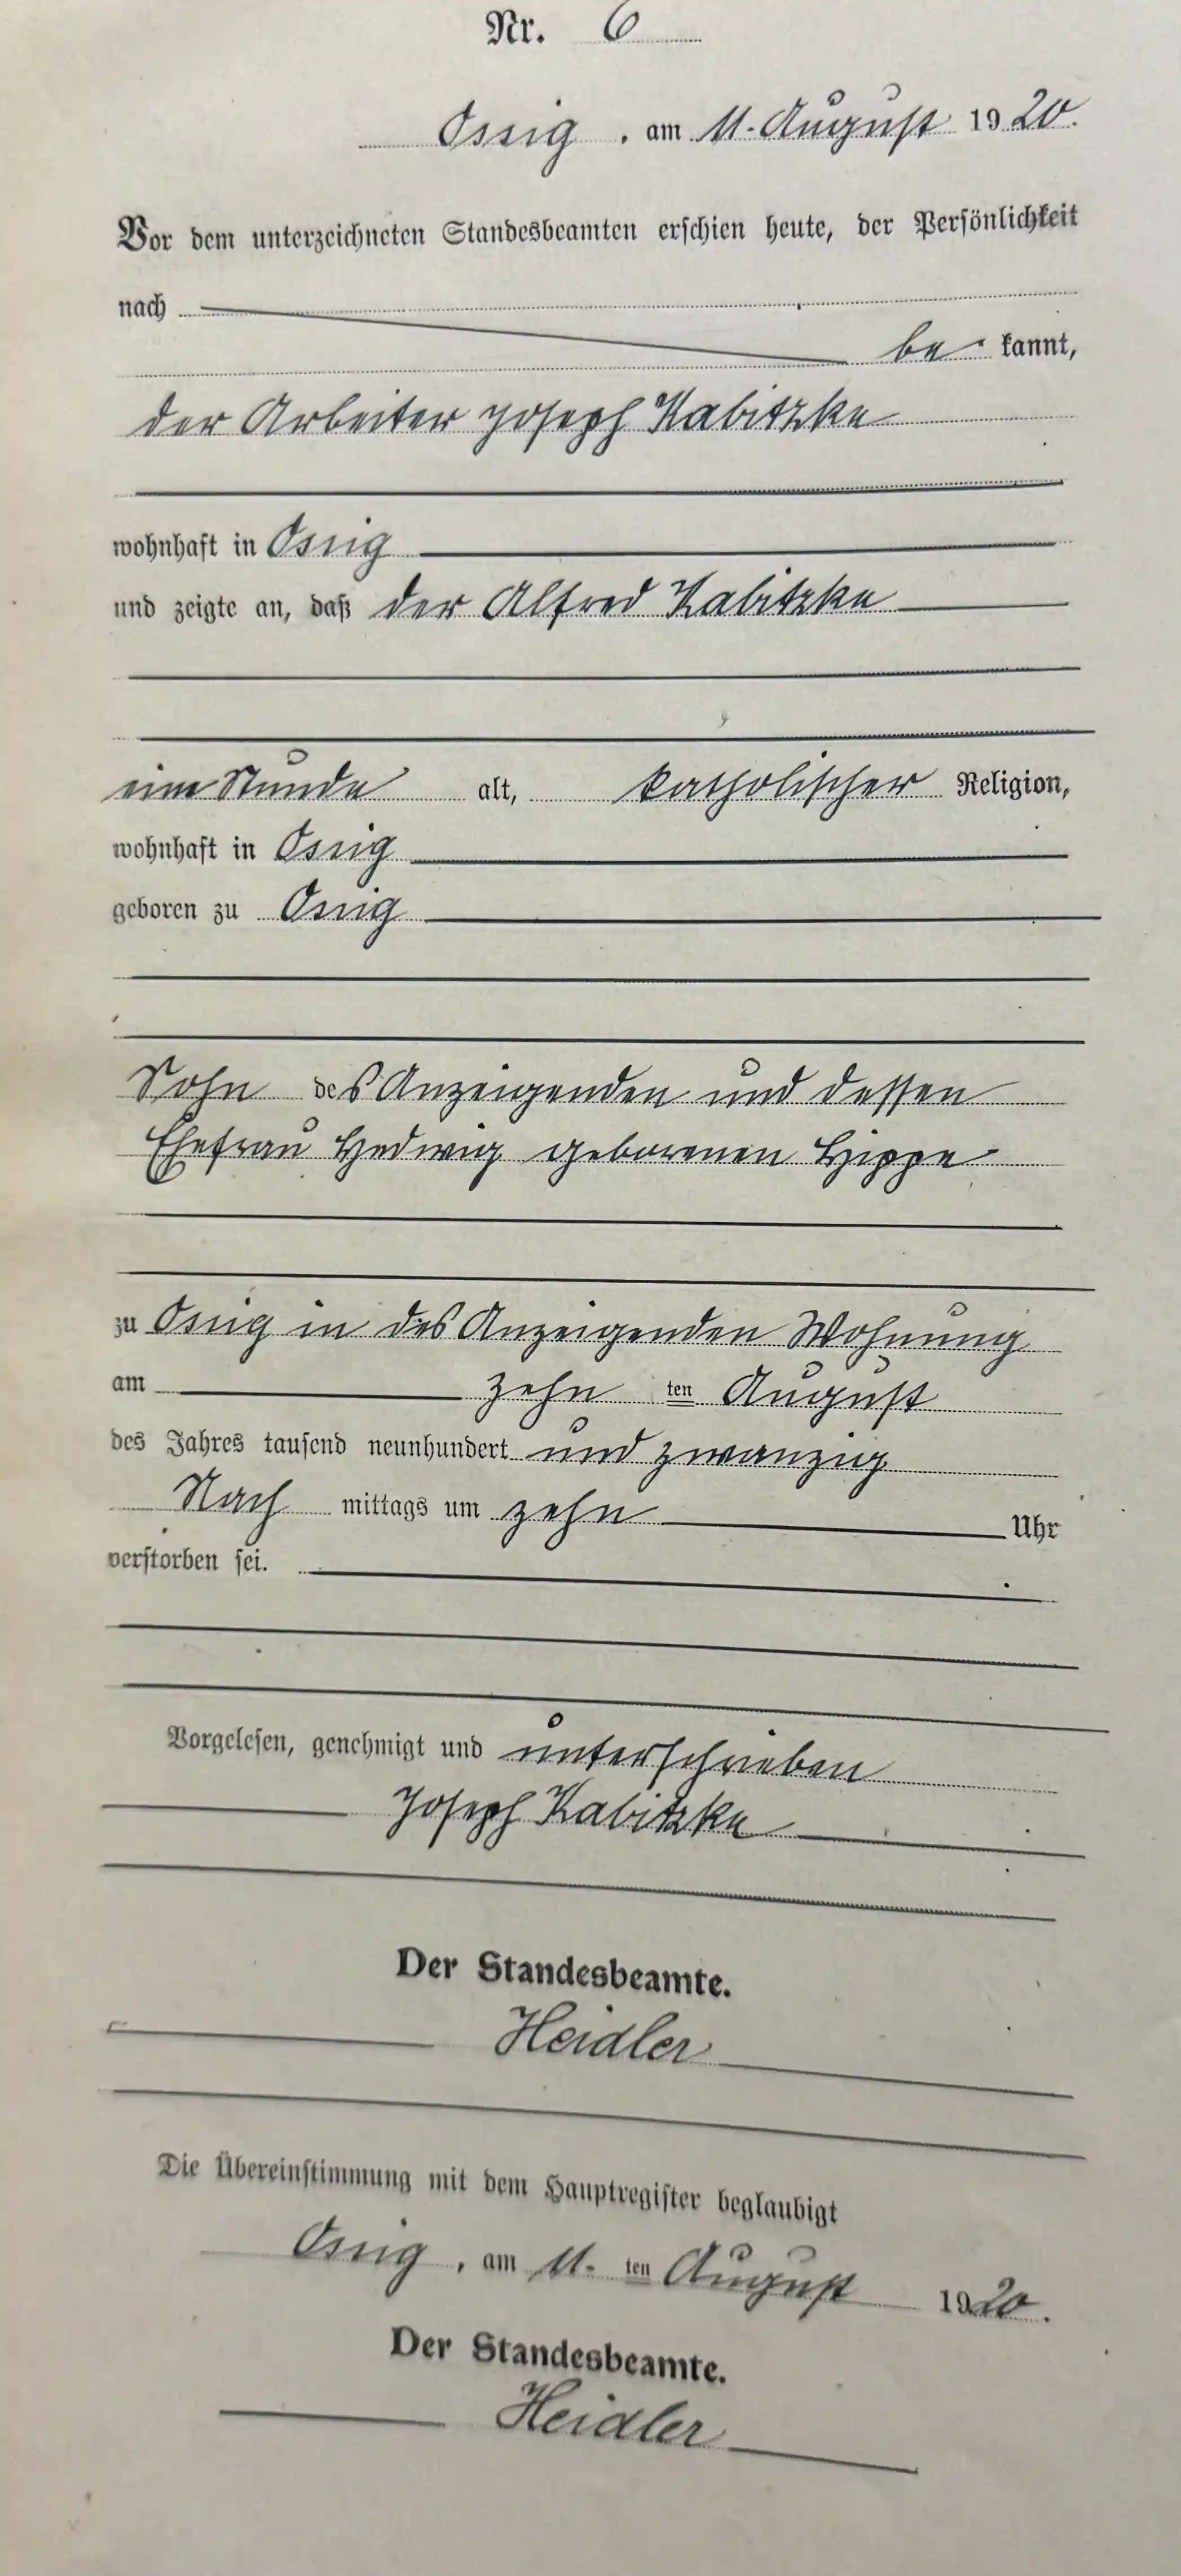 Nr. 6
Ossig, am 11. August 1920.
Vor dem unterzeichneten Standesbeamten erschien heute, der Persönlichkeit
nach
be kannt,
der Arbeiter Joseph Kabitzke
wohnhaft in Ossig
und zeigte an, daß der Alfred Kabitzke
eine Stunde alt, katholischer Religion,
wohnhaft in Ossig
geboren zu Ossig
Sohn des Anzeigenden und dessen
Ehefrau Hedwig geborenen Hippe
zu Ossig in des Anzeigenden Wohnung
am zehn ten August
des Jahres tausend neunhundert und zwanzig
Nach mittags um zehn Uhr
verstorben sei.
Vorgelesen, genehmigt und unterschrieben
Joseph Kabitzke
Der Standesbeamte.
Heidler
Die Übereinstimmung mit dem Hauptregister beglaubigt
Ossig, am 11. ten August 1920.
Der Standesbeamte.
Heidler